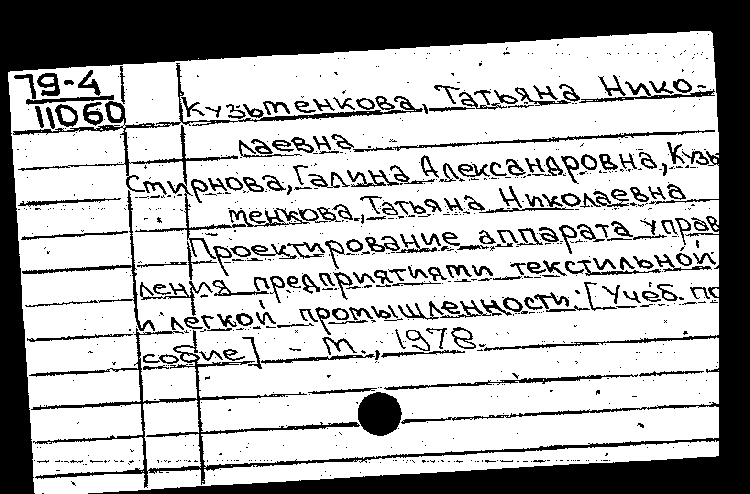 79-4
11060
Кузьменкова, Татьяна Нико-
лаевна
Смирнова, Галина Александровна, Кузь
менкова, Татьяна Николаевна
Проектирование аппарата управ
ления предприятиями текстильной
и легкой промышленности: [Учеб. по
собие] - М., 1978.